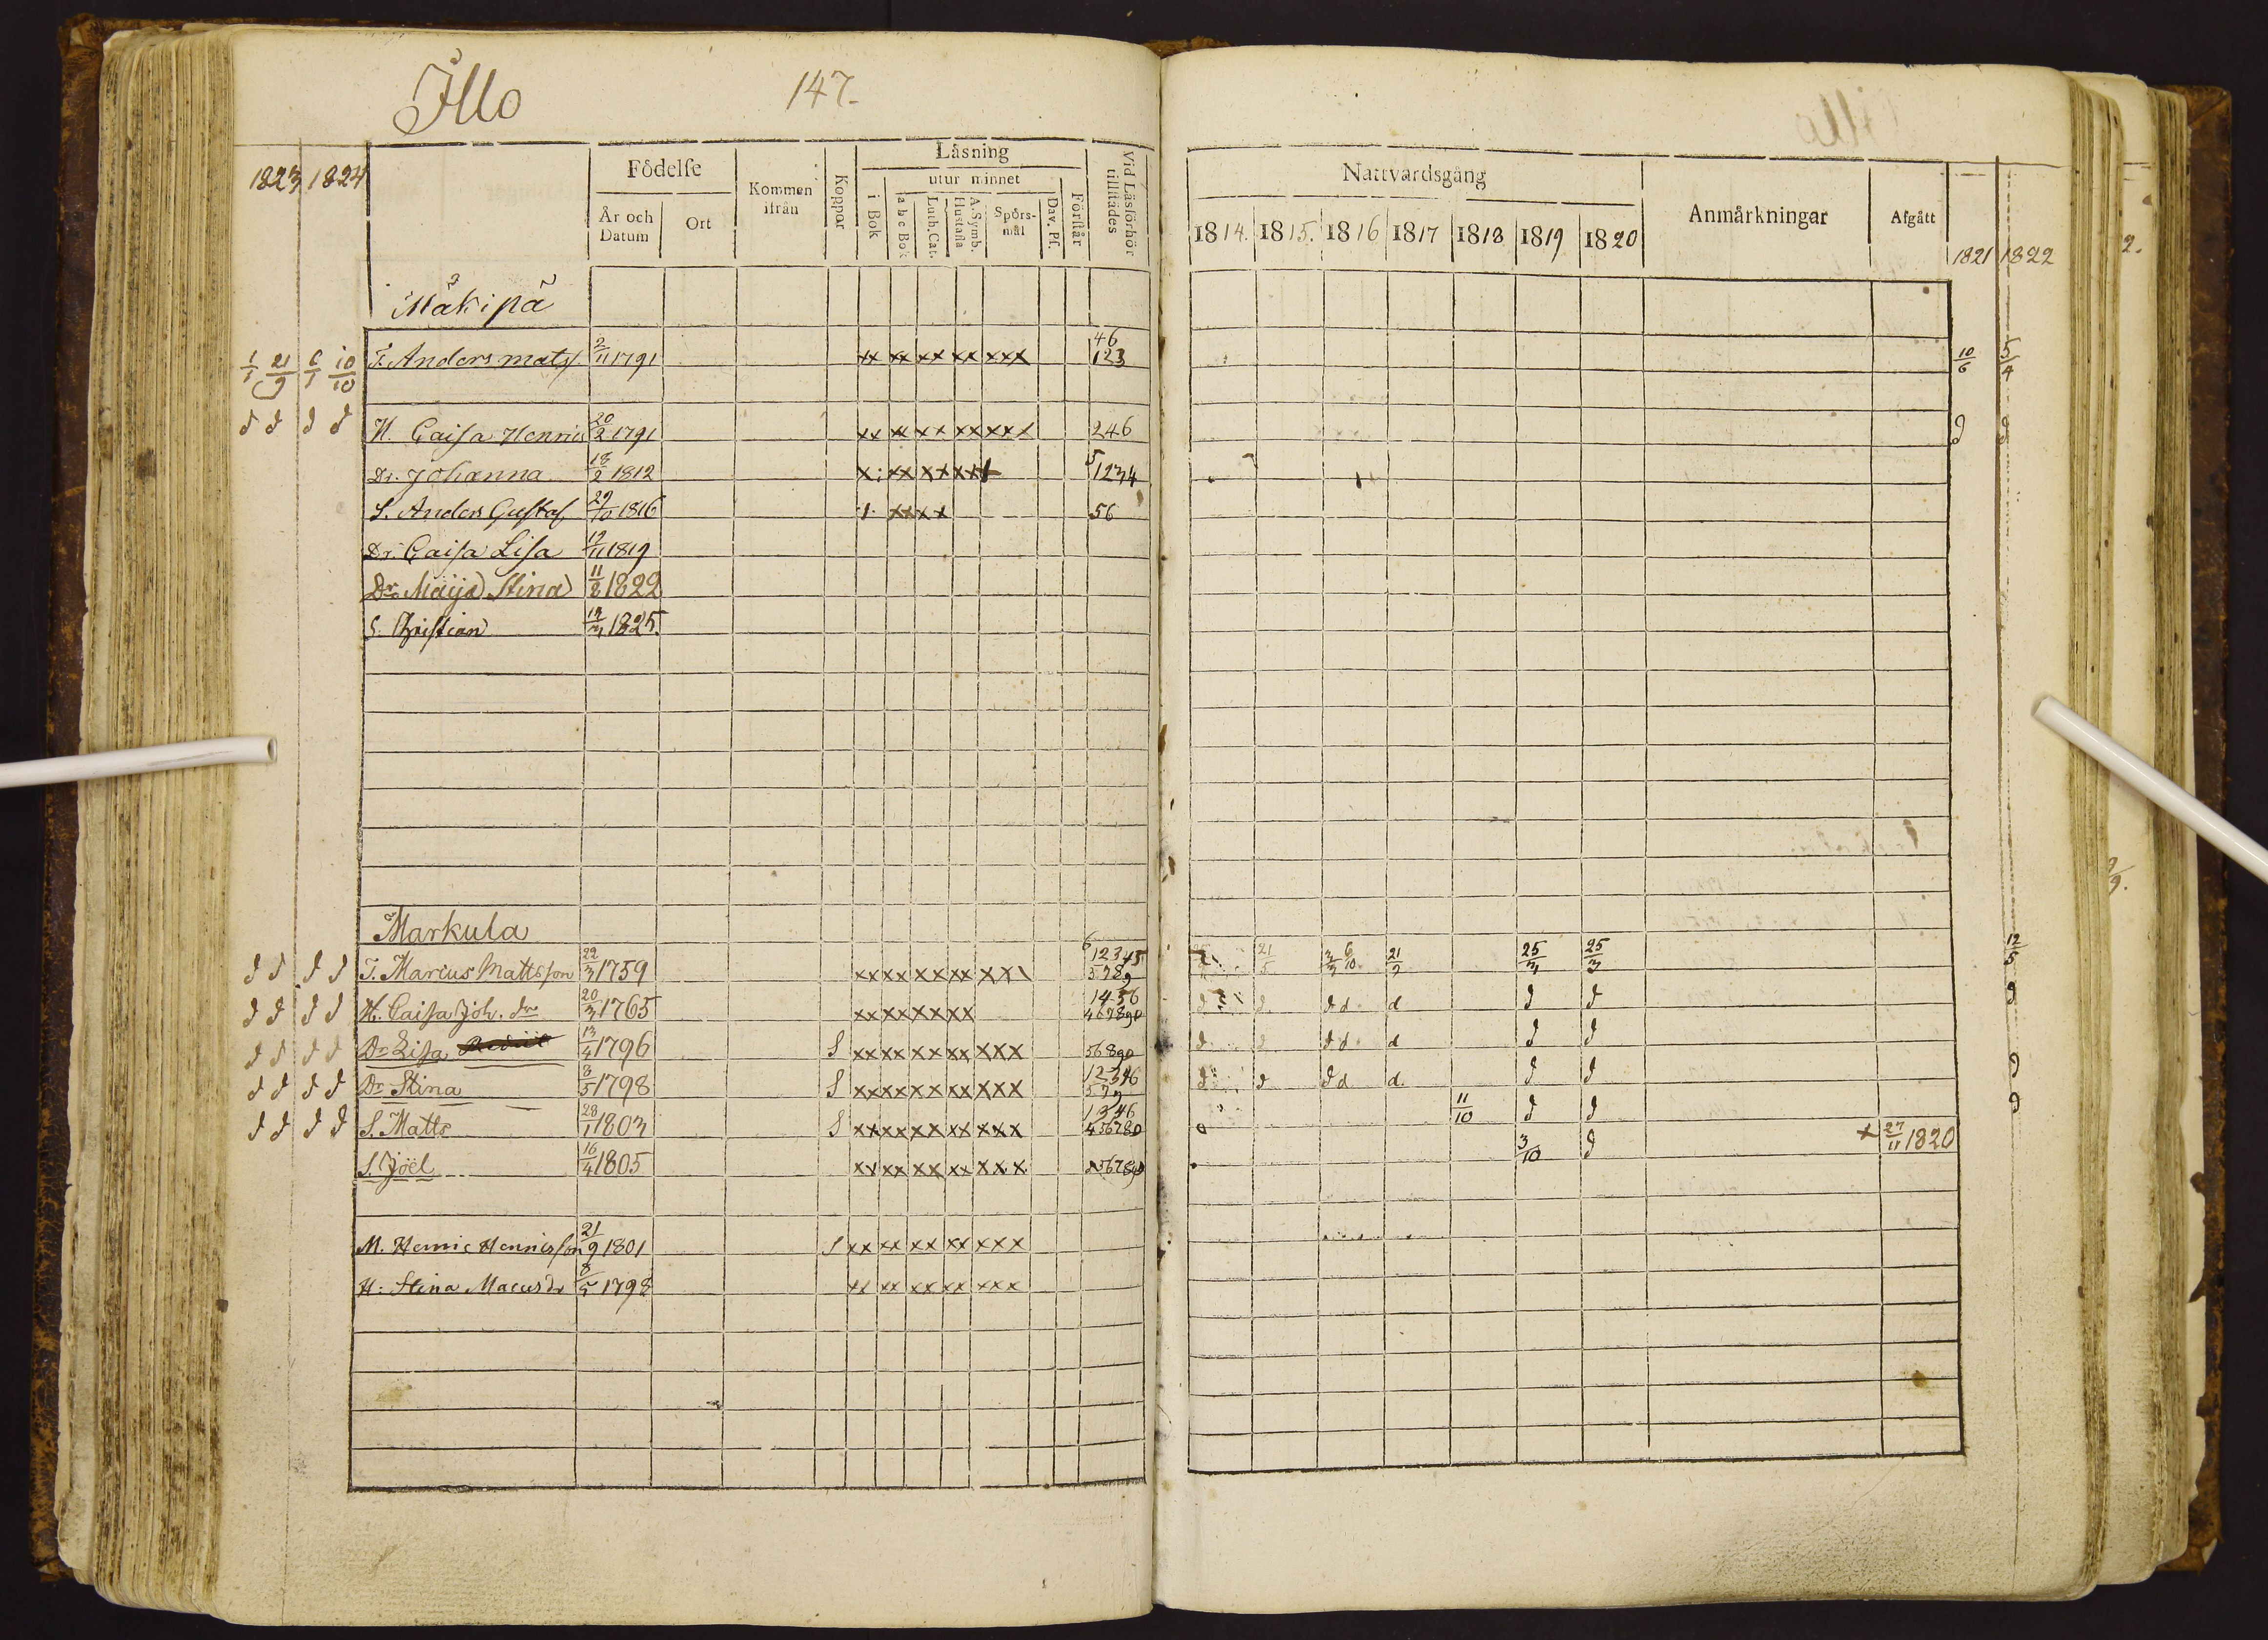 Illo 147.
1823 1824 Fôdelse Kommen ifrån Koppor Låsning Vid Låsförhör tillstädes
År och Datum Ort i Bok utur minnet Förstår
a b c Bok Luth. Cat. A. Symb. Hustafla Spörs-mål Dav. Ps.
Nattvardsgång Anmårkningar Afgått
1814. 1815. 1816 1817 1818 1819 1820 1821 1822
Mäkipä
21/9 10/10 T. Anders mats. 2/11 1791 xx xx xx xx xxx 46 123 10/6 5/4
d d d d H. Caisa Henrics 20/2 1791 xx xx xx xx xxx 246 d d
Dr. Johanna 18/2 1812 x: xx xx xx 5 1234
S. Anders Gustaf 29/10 1816 xx xx 56
Dr. Caisa Lisa 19/11 1819
Dr Maija Stina 11/8 1822
S. Christian 1825.
Markula
d d d d T. Marcus Mattsson 22/3 1759 xx xx xx xx 6 12345 5789 21/5 21/7 25/3 25/3 12/5
d d d d H. Caisa Joh. dr 20/3 1765 xx xx xx xx 1456 467890 d d d d d d d d
d d d d Dr Lisa 13/4 1796 S xx xx xx xx xxx 56890 d d d d d d d
d d d d Dr Stina 8/5 1798 S xx xx xx xx xxx 12346 579 d d d d d. d d d
d d d d S. Matts 28/1 1803 S xx xx xx xx xxx 1346 456780 11/10 d d d
S. Joël 16/4 1805 xx xx xx xx xxx 3/10 d + 27/11 1820
M. Henric Henricsson 21/9 1801 S xx xx xx xx xxx
H: Stina Macusdr 8/5 1798 xx xx xx xx xxx